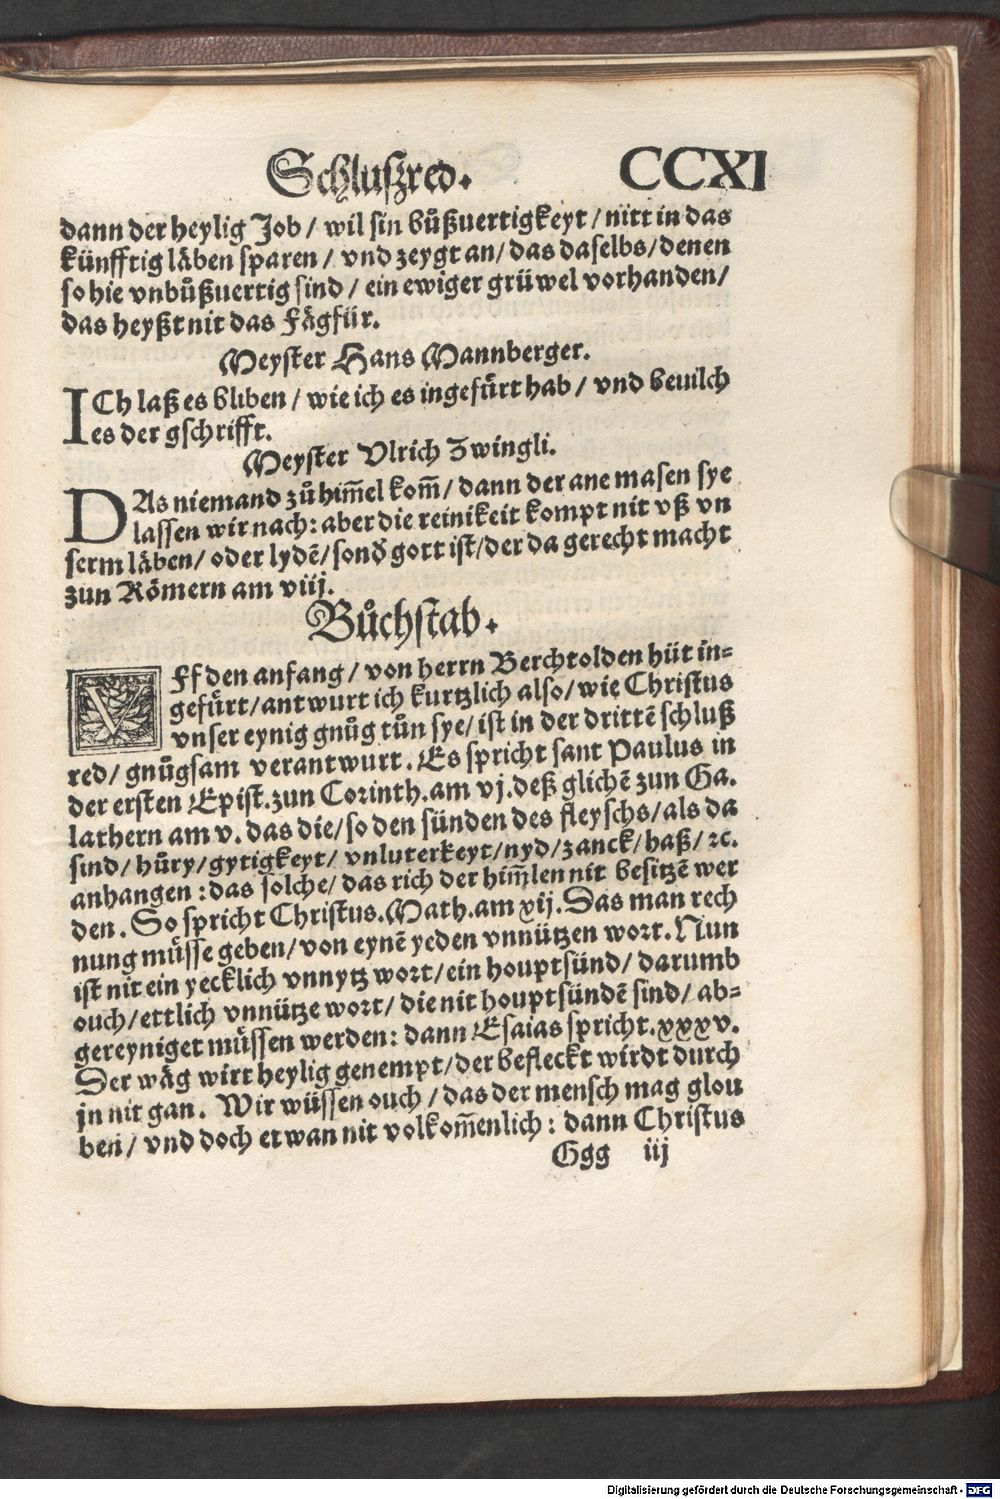 Schluſzred. CCXI
dann der heylig Job / wil ſin buͤßuertigkeyt / nitt in das
künfftig laͤben ſparen / vnd zeygt an / das daſelbs / denen
ſo hie vnbuͤßuertig ſind / ein ewiger grüwel vorhanden /
das heyßt nit das Faͤgfür.
Meyſter Hans Mannberger.
ICh laß es bliben / wie ich es ingefuͤrt hab / vnd beuilch
es der gſchrifft.
Meyſter Vlrich Zwingli.
DAs niemand zuͦ him̃el kom̃ / dann der ane maſen ſye
laſſen wir nach: aber die reinikeit kompt nit vß vn
ſerm laͤben / oder lydẽ / ſond̕ gott iſt / der da gerecht macht
zun Roͤmern am viij.
Buͦchſtab.
VFf den anfang / von herrn Berchtolden hüt in⸗
gefuͤrt / antwurt ich kurtzlich alſo / wie Chriſtus
vnſer eynig gnuͦg tuͦn ſye / iſt in der drittẽ ſchluß
red / gnuͦgſam verantwurt. Es ſpricht ſant Paulus in
der erſten Epiſt. zun Corinth. am vj. deß glichẽ zun Ga.
lathern am v. das die / ſo den ſünden des fleyſchs / als da
ſind / huͦry / gytigkeyt / vnluterkeyt / nyd / zanck / haß / ꝛc.
anhangen: das ſolche / das rich der him̃len nit beſitzẽ wer
den. So ſpricht Chriſtus. Math. am xij. Das man rech
nung muͤſſe geben / von eynẽ yeden vnnützen wort. Nun
iſt nit ein yecklich vnnytz wort / ein houptſünd / darumb
ouch / ettlich vnnütze wort / die nit houptſündẽ ſind / ab⸗
gereyniget muͤſſen werden: dann Eſaias ſpricht. xxxv.
Der waͤg wirt heylig genempt / der befleckt wirdt durch
jn nit gan. Wir wüſſen ouch / das der menſch mag glou
ben / vnd doch etwan nit volkom̃enlich: dann Chriſtus
Ggg iij
Digitalisierung gefördert durch die Deutsche Forschungsgemeinschaft - DFG